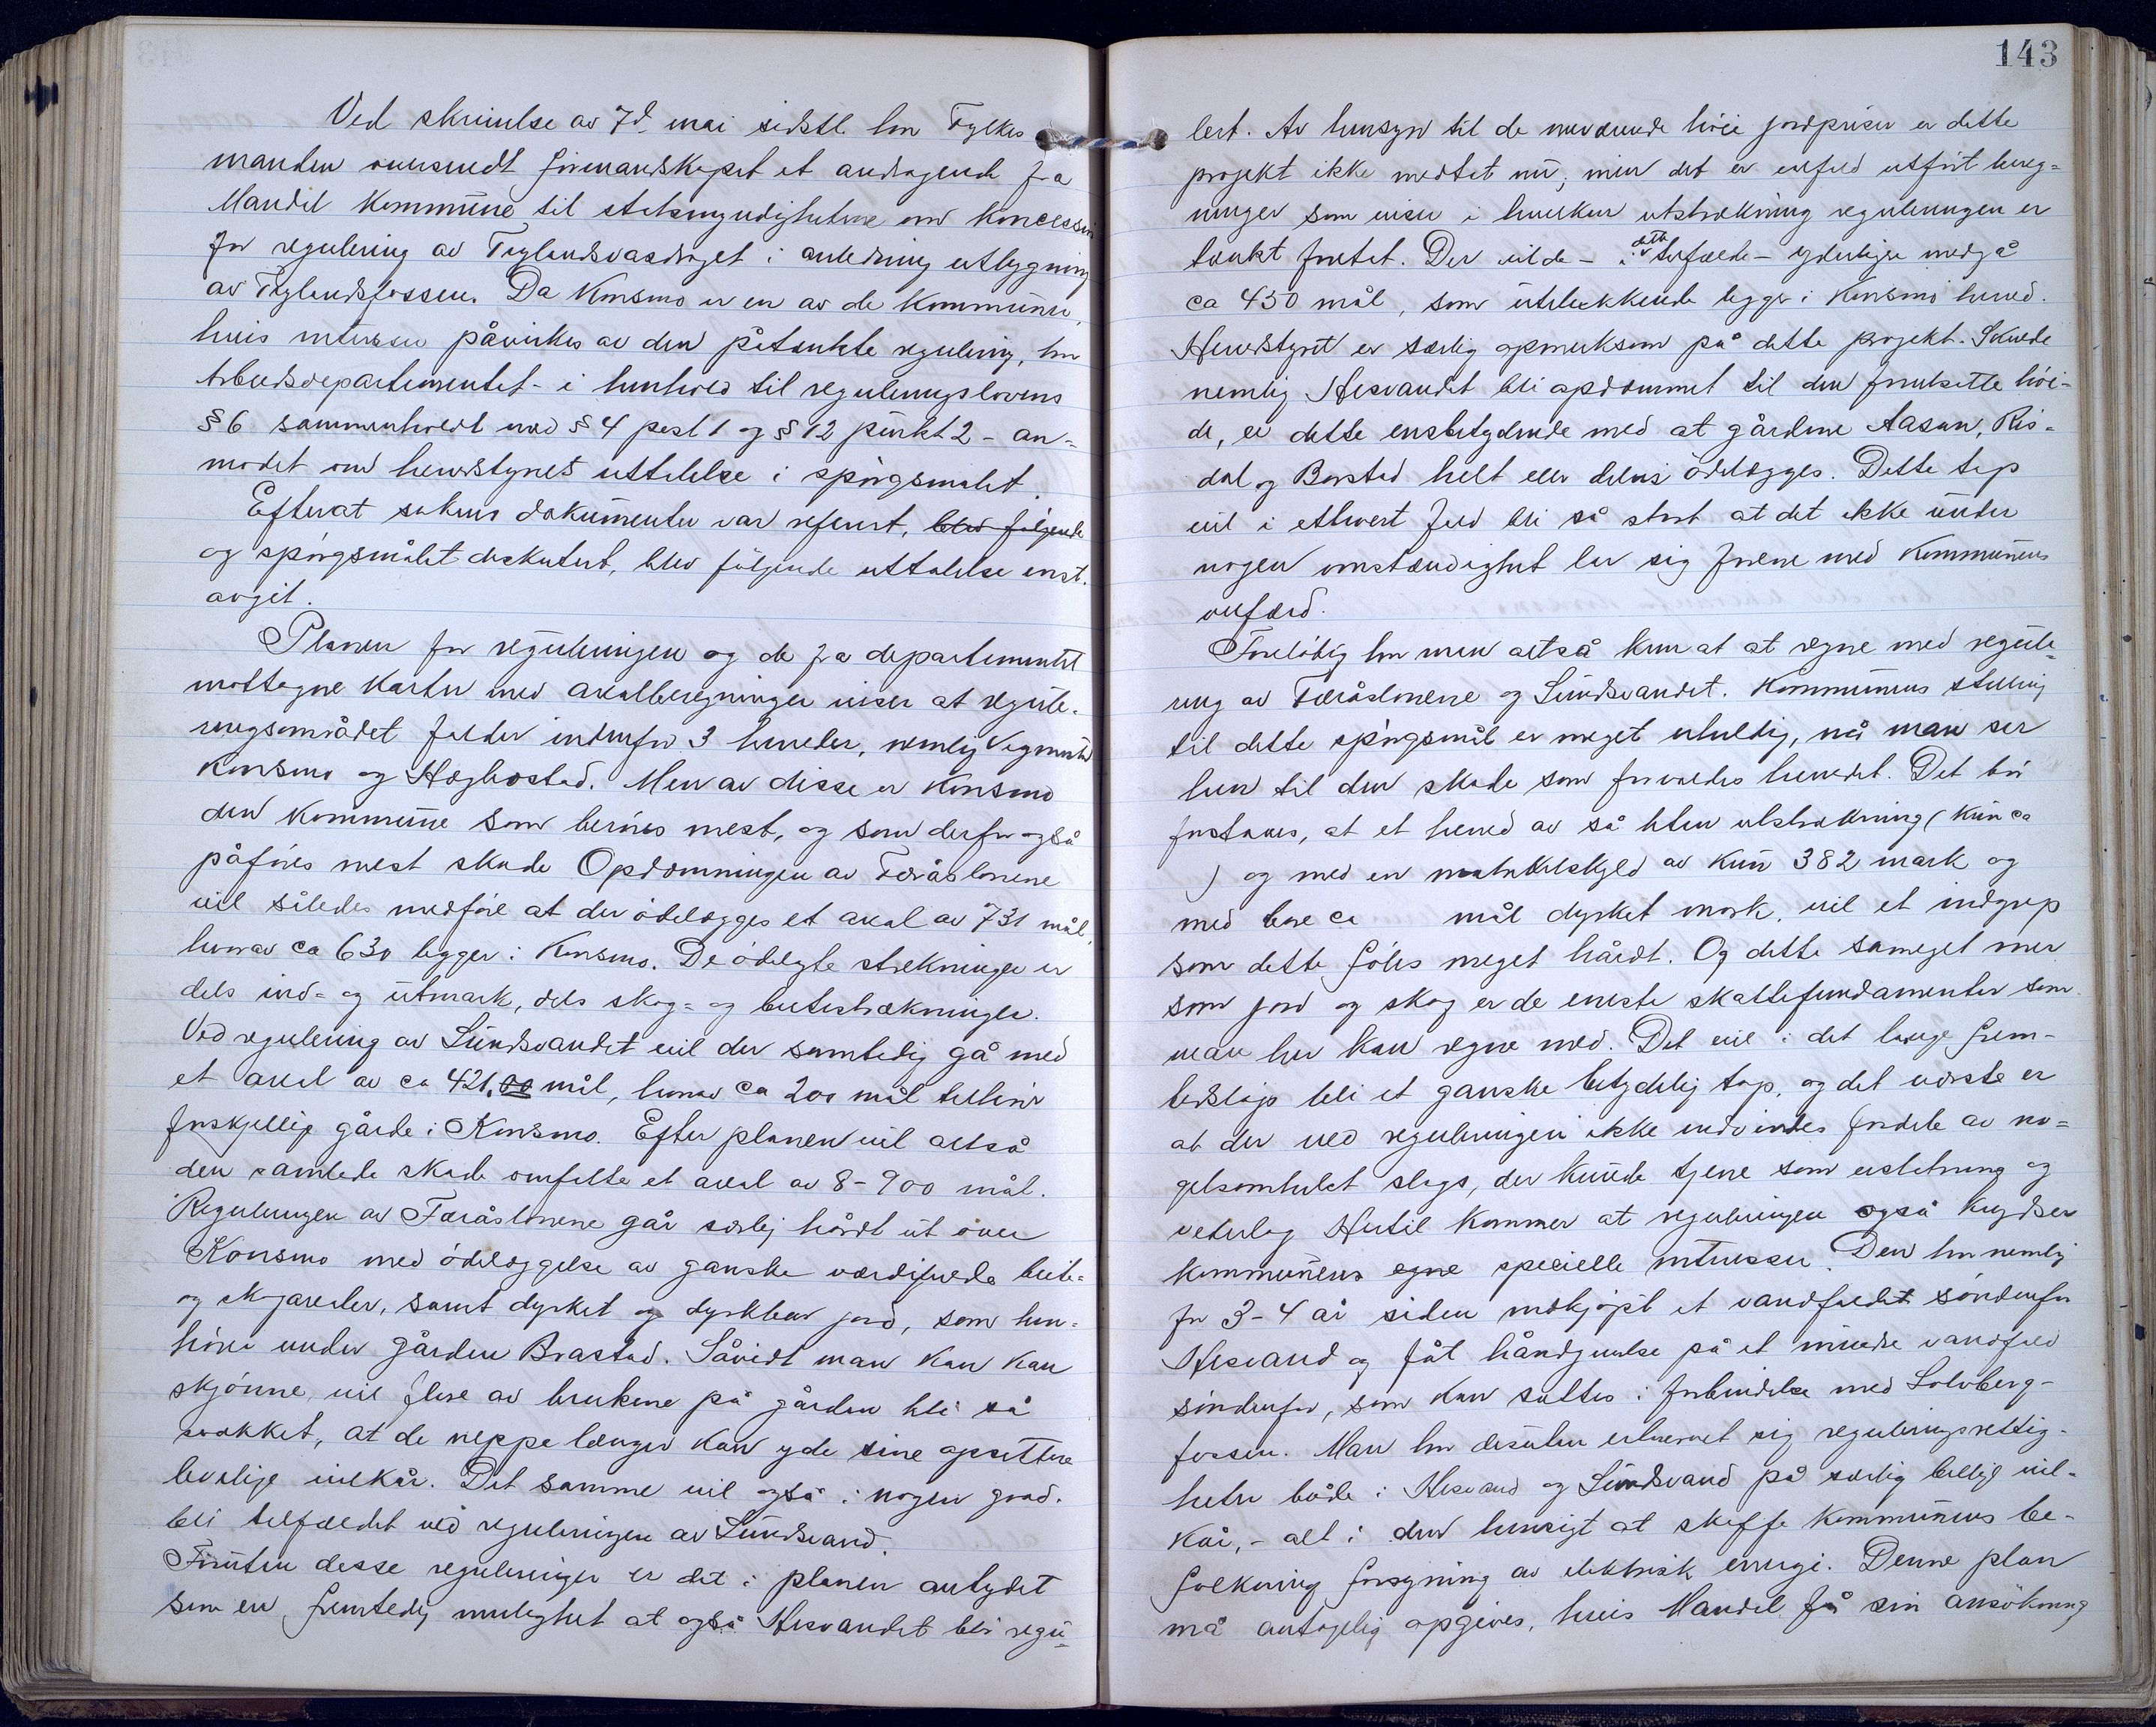 Ved skrivelse av 7d. mai sidstl. har Fylkes
manden oversendt formandskapet et andragende fra
Mandal Kommune til statsmyndighetene om koncession
for regulering av Tryland­svasdraget i anledning utbygning
av Trylandsfossen. Da Konsmo er en av de kommuner,
hvis interesser påvirkes av den påtænkte regulering, har
Arbeidsdepartementet - i henhold til reguleringslovens
§ 6 sammenholdt med § 4 post 1 og § 12 punkt 2 - an-
modet om herredstyrets uttalelse i spørgsmalet.
Efterat sakens dokumenter var referert, blev følgende
og spørgsmålet diskutert, blev følgende uttalelse enst.
avgit.
Planen for reguleringen og de fra departementet
mottagne karter med arealberegninger viser at regule-
ringsområdet falder indenfor 3 herreder, nemlig Vegmostad
Konsmo og Hægbostad. Men av disse er Konsmo
den kommune som berøres mest, og som derfor også
påføres mest skade. Opdæmningen av Færåslonene
vil således medføre at der ødelægges et areal av 731 mål,
hvorav ca 630 ligger i Konsmo. De ødelagte strekninger er
dels ind- og utmark, dels skog- og beitestrækninger.
Ved regulering av Sundsvandet vil der samtidig gå med
et areal av ca 421,00 mål, hvorav ca 200 mål tilhører
forskjellige gårde i Konsmo. Efter planen vil altså
den samlede skade omfatte et areal av 8-900 mål.
Reguleringen av Færåslonene går særlig hårdt ut over
Konsmo med ødelæggelse av ganske værdifulde beite-
og skogarealer, samt dyrket og dyrkbar jord, som hen-
hører under gården Brastad. Såvidt man kan kan
skjønne, vil flere av brukene på gården bli så
svækket, at de neppe længer kan yde sine opsittere
levelige vilkår. Det samme vil også i nogen grad.
bli tilfældet ved reguleringen av Sundsvand.
Foruten desse reguleringer er det i planen antydet
som en fremtidig mulighet at også Hesvandet bli regu-
143
lert. Av hensyn til de nuværende høie jordpriser er dette
projekt ikke medtat nu; men det er ialfald utført bereg-
ninger som viser i hvilken utstrækning reguleringen er
tænkt foretat. Der vilde - i dette tilfælde - yderligere medgå
ca 450 mål, som utelukkende ligger i Konsmo herred.
Herredstyret er særlig opmerksom på dette projekt. Skulde
nemlig Hesvandet bli opdæmmet til den forutsatte høi-
de, er dette ensbetydende med at gårdene Aasan, Ris-
dal og Barstad helt eller delvis ødelægges. Dette tap
vil i ethvert fald bli så stort at det ikke under
nogen omstændighet lar sig forene med kommunens
velfærd.
Foreløbig har man altså kun at at regne med regule-
ring av Færåslonene og Sundsvandet. Kommunens stilling
til dette spørgsmål er meget uheldig, når man ser
hen til den skade som forvoldes herredet. Det bør
fastaaes, at et herred av så liten utstrækning (kun ca
) og med en matrikelskyld av kun 382 mark og
med bare ca mål dyrket mark, vil et indgrep
som dette føles meget hårdt. Og dette sameget mer
som jord og skog er de eneste skattefundamenter som
man her kan regne med. Det vil i det lange frem-
tidsløp bli et ganske betydelig tap, og det værste er
at der ved reguleringen ikke indvindes fordele av no-
getsomhelst slags, der kunde tjene som erstatning og
vederlag. Hertil kommer at reguleringen også krydser
kommunens egne specielle interesser. Den har nemlig
for 3-4 år siden indkjøpt et vandfaldet søndenfor
Hesvand og fåt håndgivelse på et mindre vandfald
søndenfor, som kan sættes i forbindelse med Solvberg-
fossen. Man har desuten erhvervet sig reguleringsrettig-
heter både i Hesvand og Sundsvand på særlig billige vil-
kår, - alt i den hensigt at skaffe kommunens be-
folkning forsyning av elektrisk energi. Denne plan
må antagelig opgives, hvis Mandal få sin ansøkning